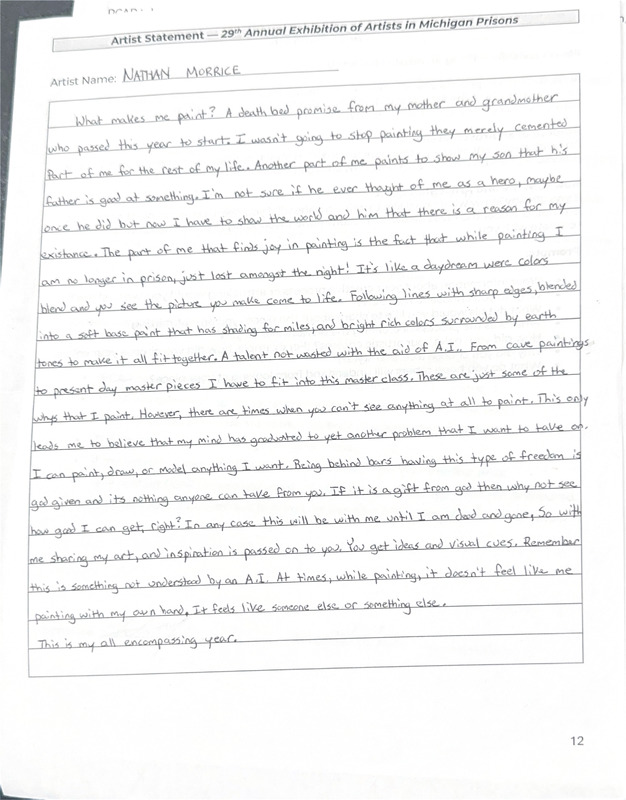 Artist Statement — 29th Annual Exhibition of Artists in Michigan Prisons
Artist Name: NATHAN MORRICE
What makes me paint? A death bed promise from my mother and grandmother
who passed this year to start. I wasn't going to stop painting they merely cemented
Part of me for the rest of my life. Another part of me paints to show my son that his
father is good at something. I'm not sure if he ever thought of me as a hero, maybe
once he did but now I have to show the world and him that there is a reason for my
existance. The part of me that finds joy in painting is the fact that while painting I
am no longer in prison, just lost amongst the night! It's like a daydream were colors
blend and you see the picture you make come to life. Following lines with sharp edges, blended
into a soft base paint that has shading for miles, and bright rich colors surrounded by earth
tones to make it all fit together. A talent not wasted with the aid of A.I.. From cave paintings
to present day master pieces I have to fit into this master class. These are just some of the
whys that I paint. However, there are times when you can't see anything at all to paint. This only
leads me to believe that my mind has graduated to yet another problem that I want to take on.
I can paint, draw, or model anything I want. Being behind bars having this type of freedom is
god given and its nothing anyone can take from you. If it is a gift from god then why not see
how good I can get, right? In any case this will be with me until I am dead and gone. So with
me sharing my art, and inspiration is passed on to you. You get ideas and visual cues. Remember
this is something not understood by an A.I. At times, while painting, it doesn't feel like me
painting with my own hand. It feels like someone else or something else.
This is my all encompassing year.
12